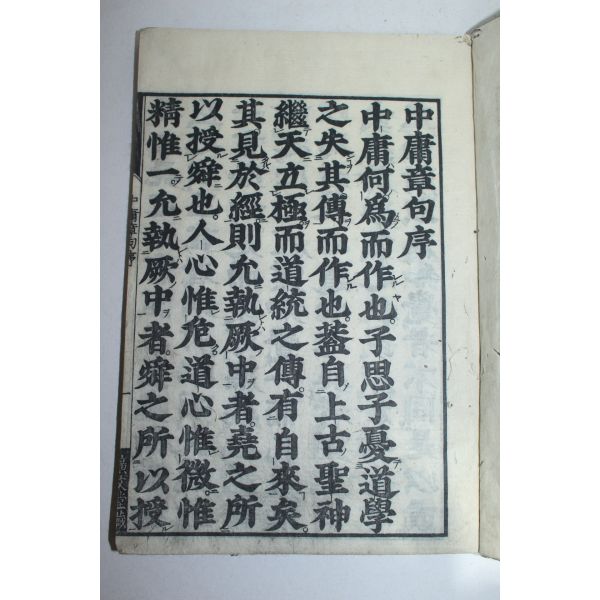 中庸章句序
中庸何爲而作也。子思子憂道學
之失其傳而作也。蓋自上古聖神
繼天立極而道統之傳有自來矣。
其見於經則允執厥中者。堯之所
以授舜也。人心惟危。道心惟微。惟
精惟一。允執厥中者。舜之所以授
中庸章句序